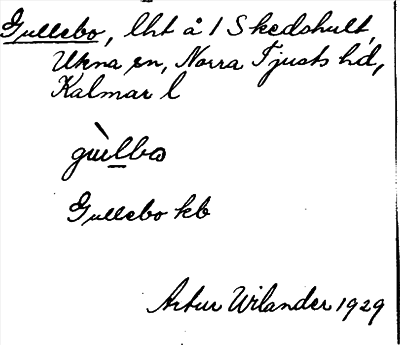 Gullebo, lht å 1 Skedshult,
Ukna sn, Norra Tjusts hd,
Kalmar l
gùllbo
Gullebo kb
Artur Wilander 1929